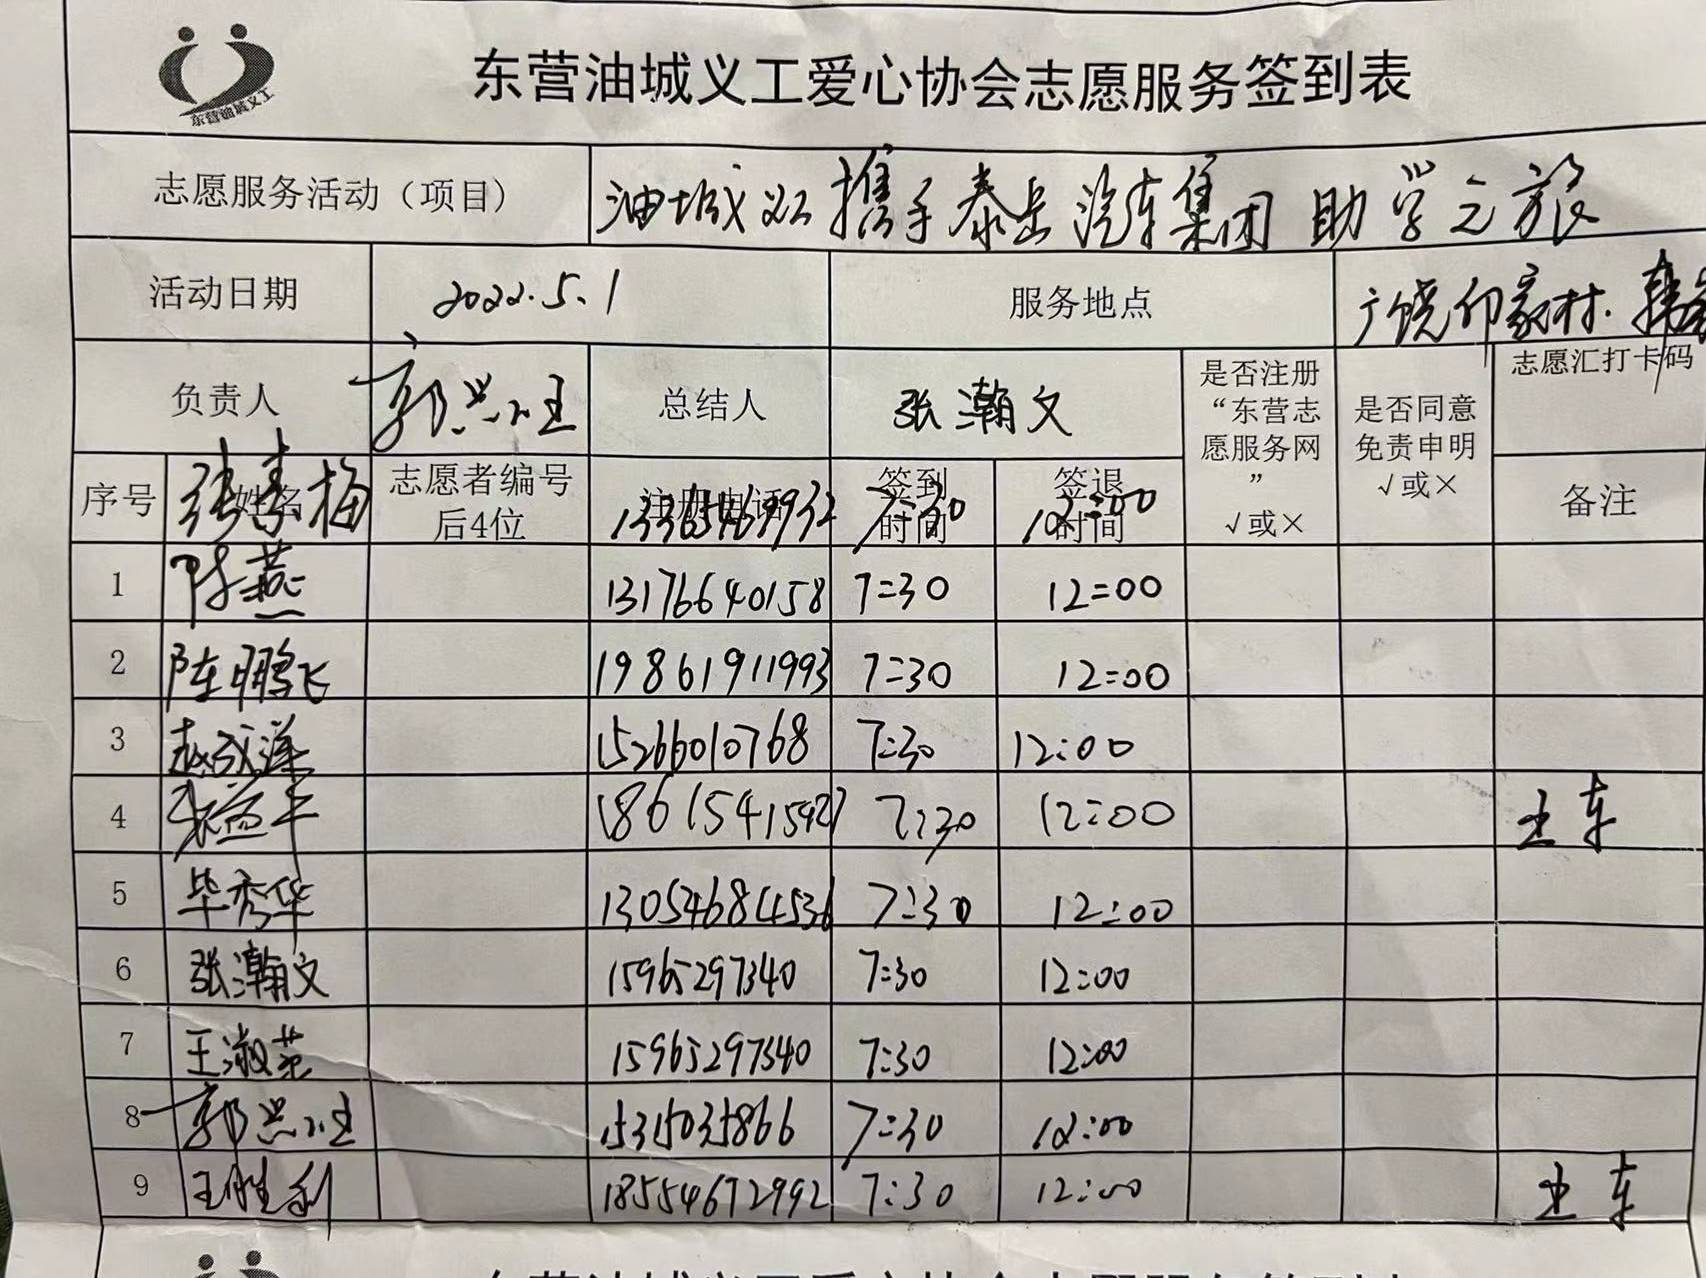 东营油城义工
东营油城义工爱心协会志愿服务签到表
志愿服务活动（项目） 油城义工携手泰岳汽车集团助学之旅
活动日期 2022.5.1 服务地点 广饶 家村.
负责人 郭兴 总结人 张瀚文 是否注册“东营志愿服务网”√或× 是否同意免责申明√或× 志愿汇打卡码
序号 姓名 张素梅 志愿者编号后4位 注册电话 签到时间 7:30 签退时间 12:00 备注
1 陈燕 13176640158 7:30 12:00
2 陈鹏飞 19861911993 7:30 12:00
3 赵成洋 15266010768 7:30 12:00
4 7:30 12:00 出车
5 毕秀华 13054684536 7:30 12:00
6 张瀚文 15965297340 7:30 12:00
7 王淑 15965297340 7:30 12:00
8 郭兴 15315035866 7:30 12:00
9 王胜利 18554672992 7:30 12:00 出车